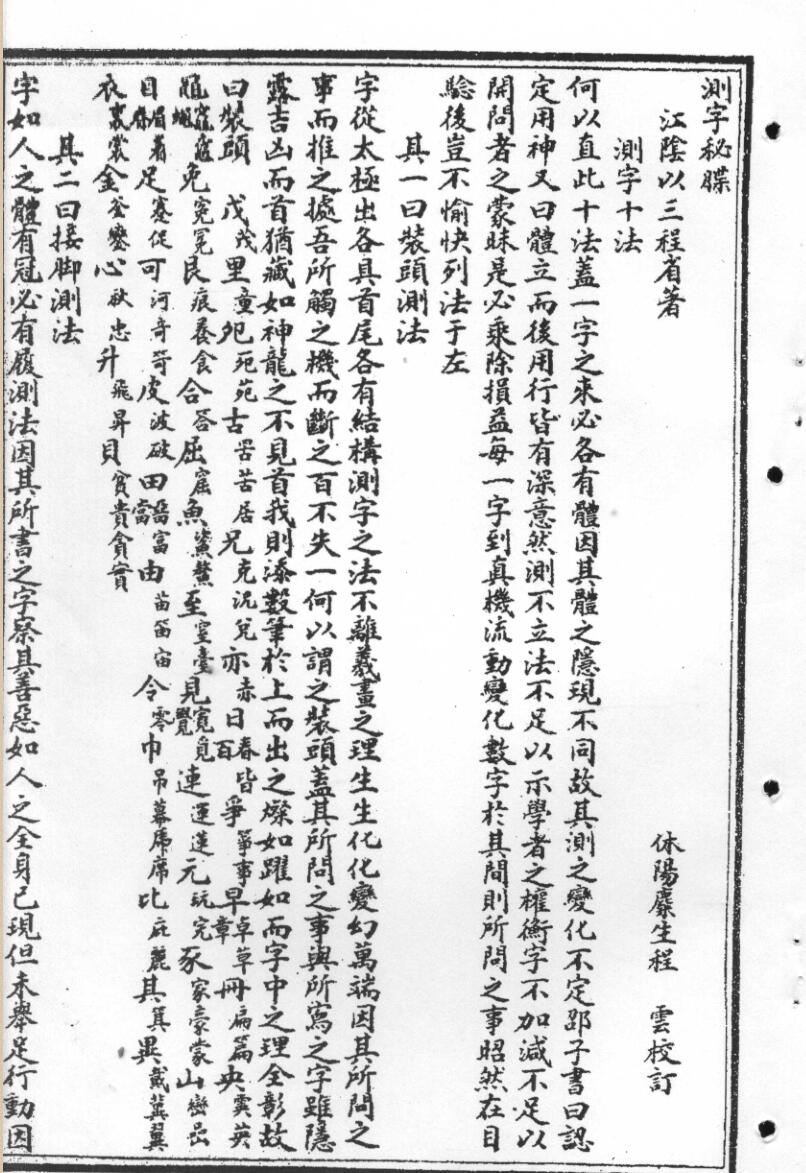 測字秘牒
江陰以三程省著　休陽麋生程　雲校訂
測字十法
何以直此十法蓋一字之來必各有體因其體之隱現不同故其測之變化不定邵子書曰認
定用神又曰體立而後用行皆有深意然測不立法不足以示學者之權衡字不加減不足以
開問者之蒙昧是必乘除損益每一字到真機流動變化數字於其間則所問之事昭然在目
驗後豈不愉快列法于左
其一曰裝頭測法
字從太極出各具首尾各有結構測字之法不離羲畫之理生生化化變幻萬端因其所問之
事而推之據吾所觸之機而斷之百不失一何以謂之裝頭蓋其所問之事與所寫之字雖隱
露吉凶而首猶藏如神龍之不見首我則添數筆於上而出之燦如躍如而字中之理全彰故
曰裝頭　戊茂里童夗宛苑古罟苦居兄克況兌亦赤日春皆百爭箏事早卓草章冊扁篇央霙英
黽竄寇蠅免寃冕艮痕養食合答屈窟魚鯊鰲至室臺見寬覓覺連運蓮元玩完豕家豪蒙山巒岊
目眉着足蹇促可河奇苛皮波破田畱富當由苗笛宙令零巾吊幕席比庇麓其箕異戴冀翼
衣裳金釜鑾心欲忠升飛昇貝貧貴貪實
其二曰接脚測法
字如人之體有冠必有履測法因其所書之字察其善惡如人之全身已現但未舉足行動因